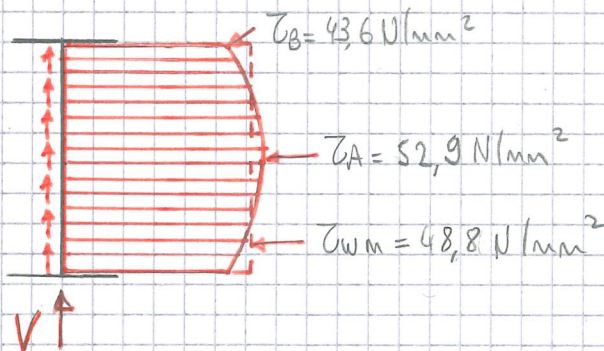 τB = 43,6 N/mm²
τA = 52,9 N/mm²
τwm = 48,8 N/mm²
V